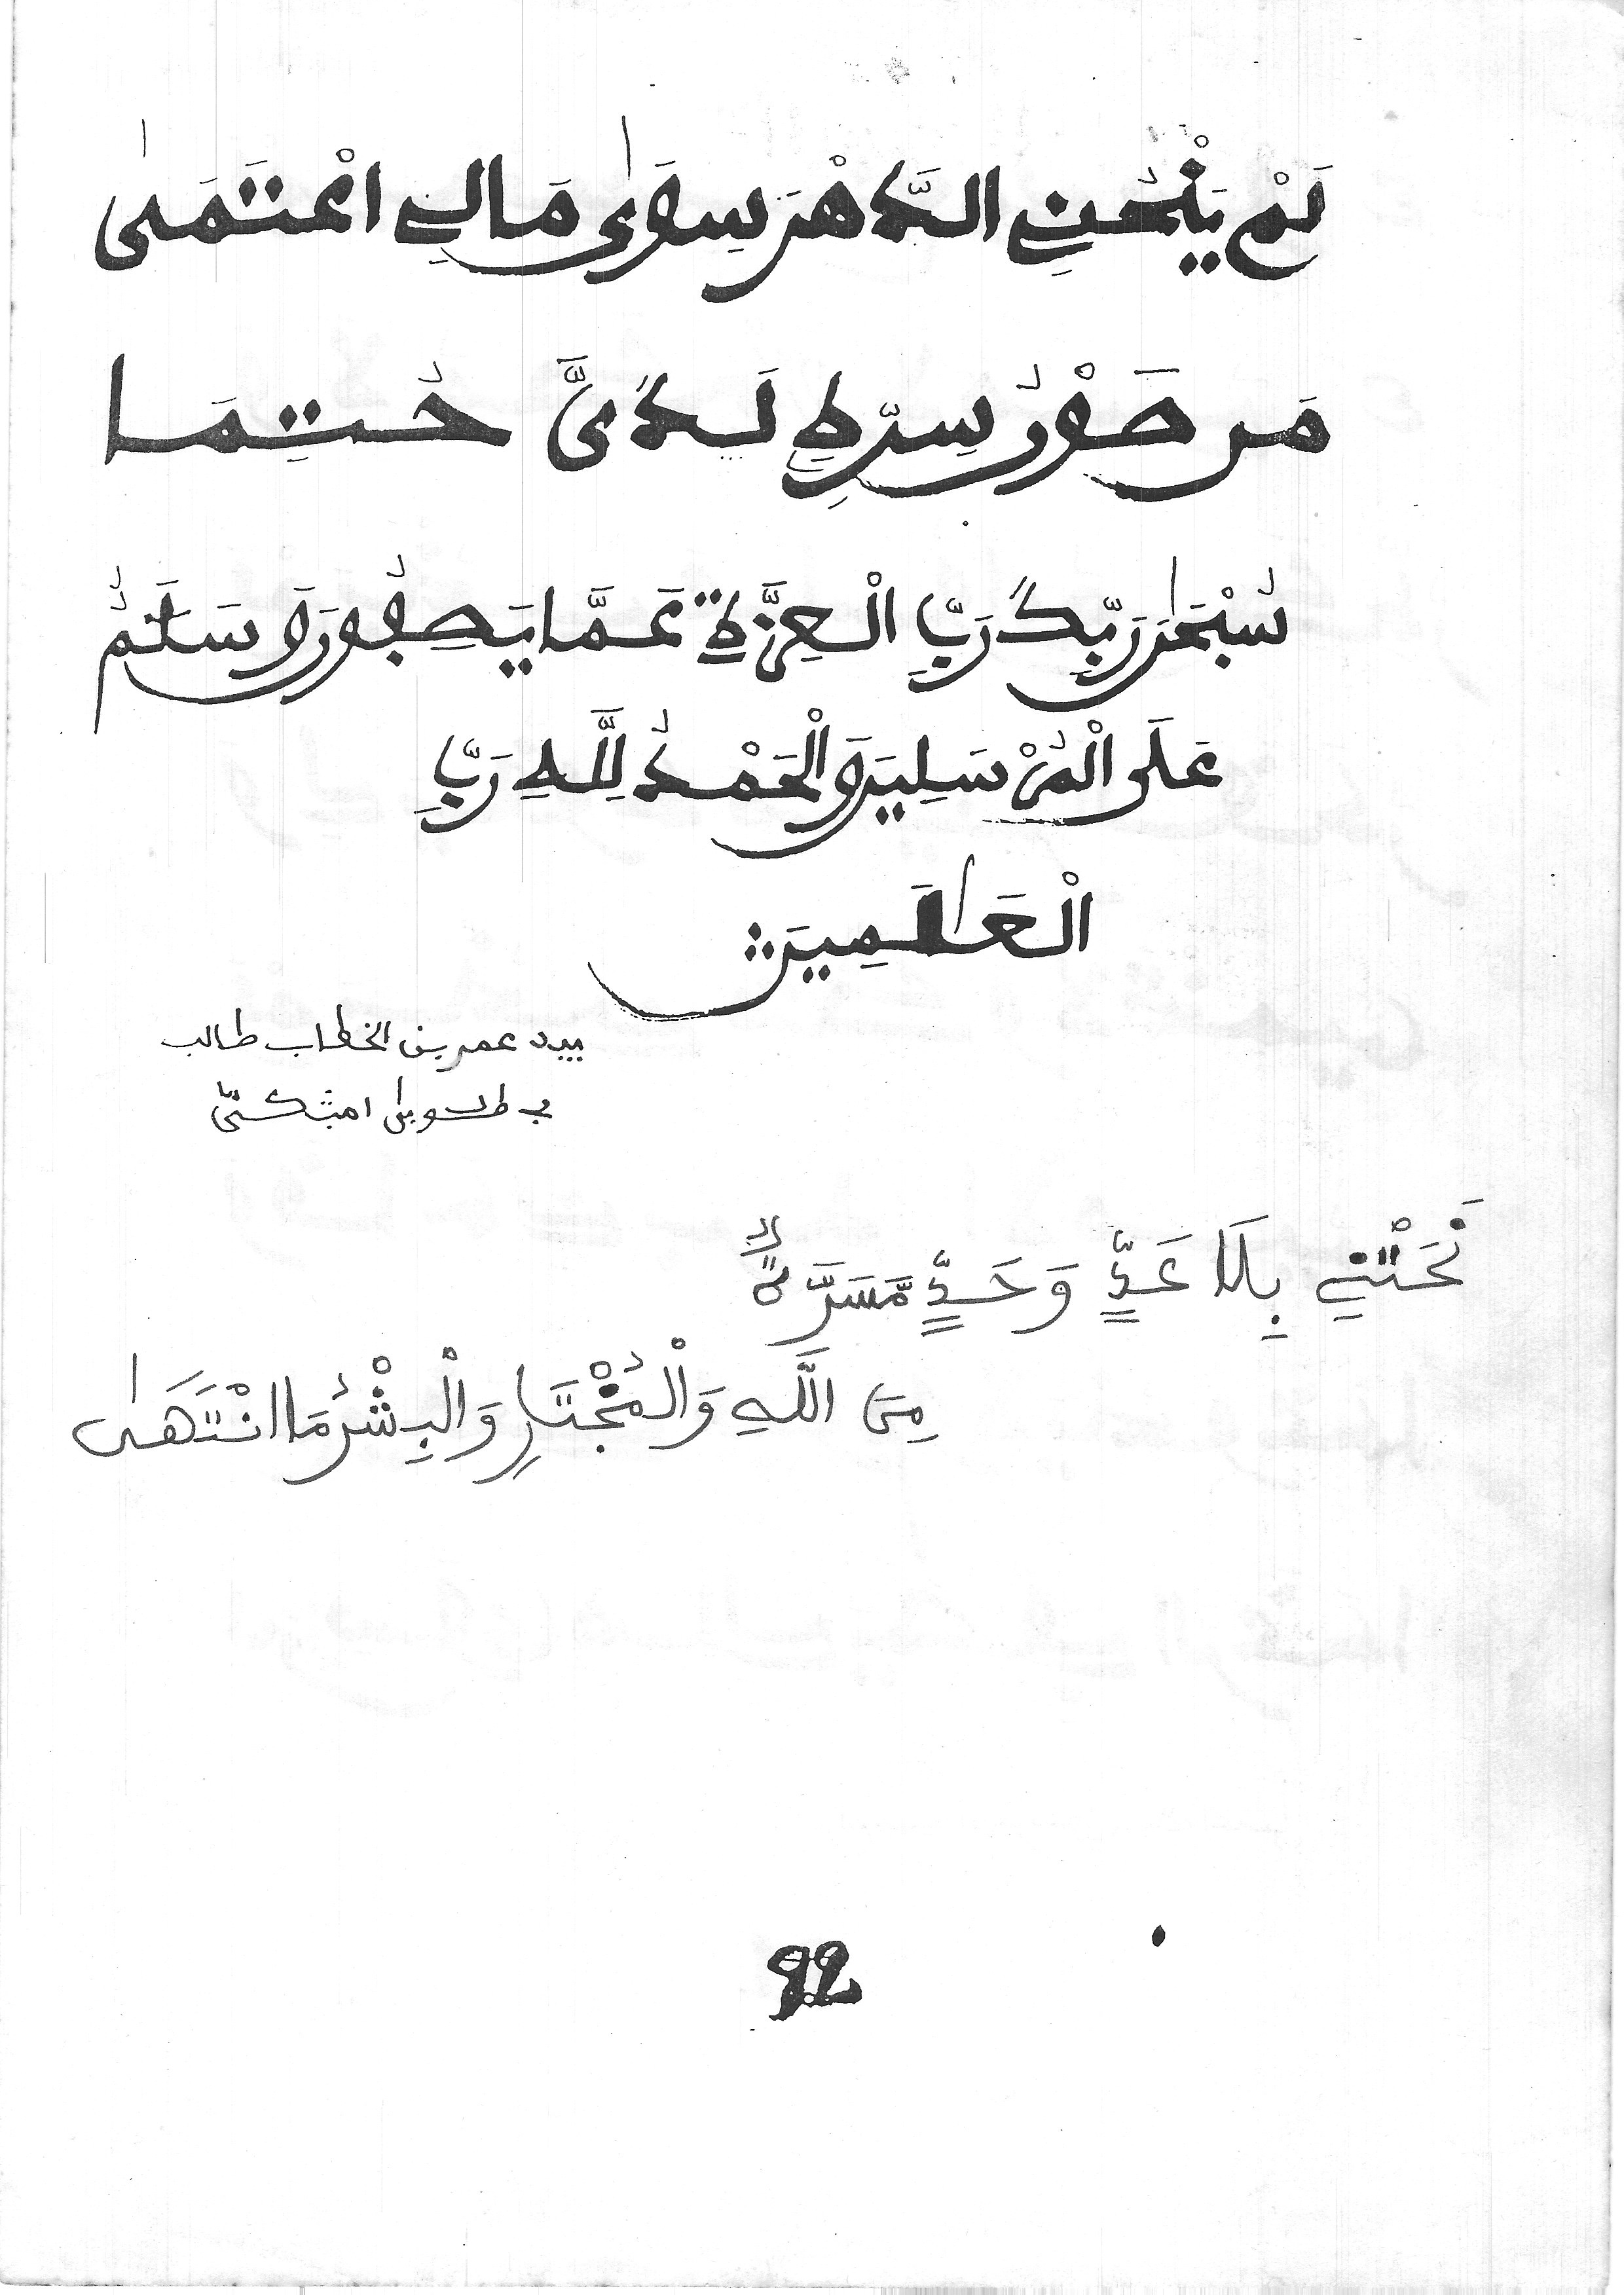 لَمْ يَنْحُنِ الدَّهْرَ سِوَىٰ مَا لِي انْتَمَىٰ
مَن صَفْوُ سِرِّهِ لَدَىَّ خُتِمَا
سُبْحَٰنَ رَبِّكَ رَبِّ الْعِزَّةِ عَمَّا يَصِفُونَ وَسَلَٰمٌ
عَلَى الْمُرْسَلِينَ وَالْحَمْدُ لِلَّهِ رَبِّ
الْعَٰلَمِينَ
بيد عمر بن الخطاب طالب
في طوبى امبكى
نَحَتْنِي بِلَا عَدٍّ وَحَدٍّ مَّسَرَّةٌ
مِنَ اللَّهِ وَالْمُخْتَارِ وَالْبِشْرُ مَا انْتَهَىٰ
92